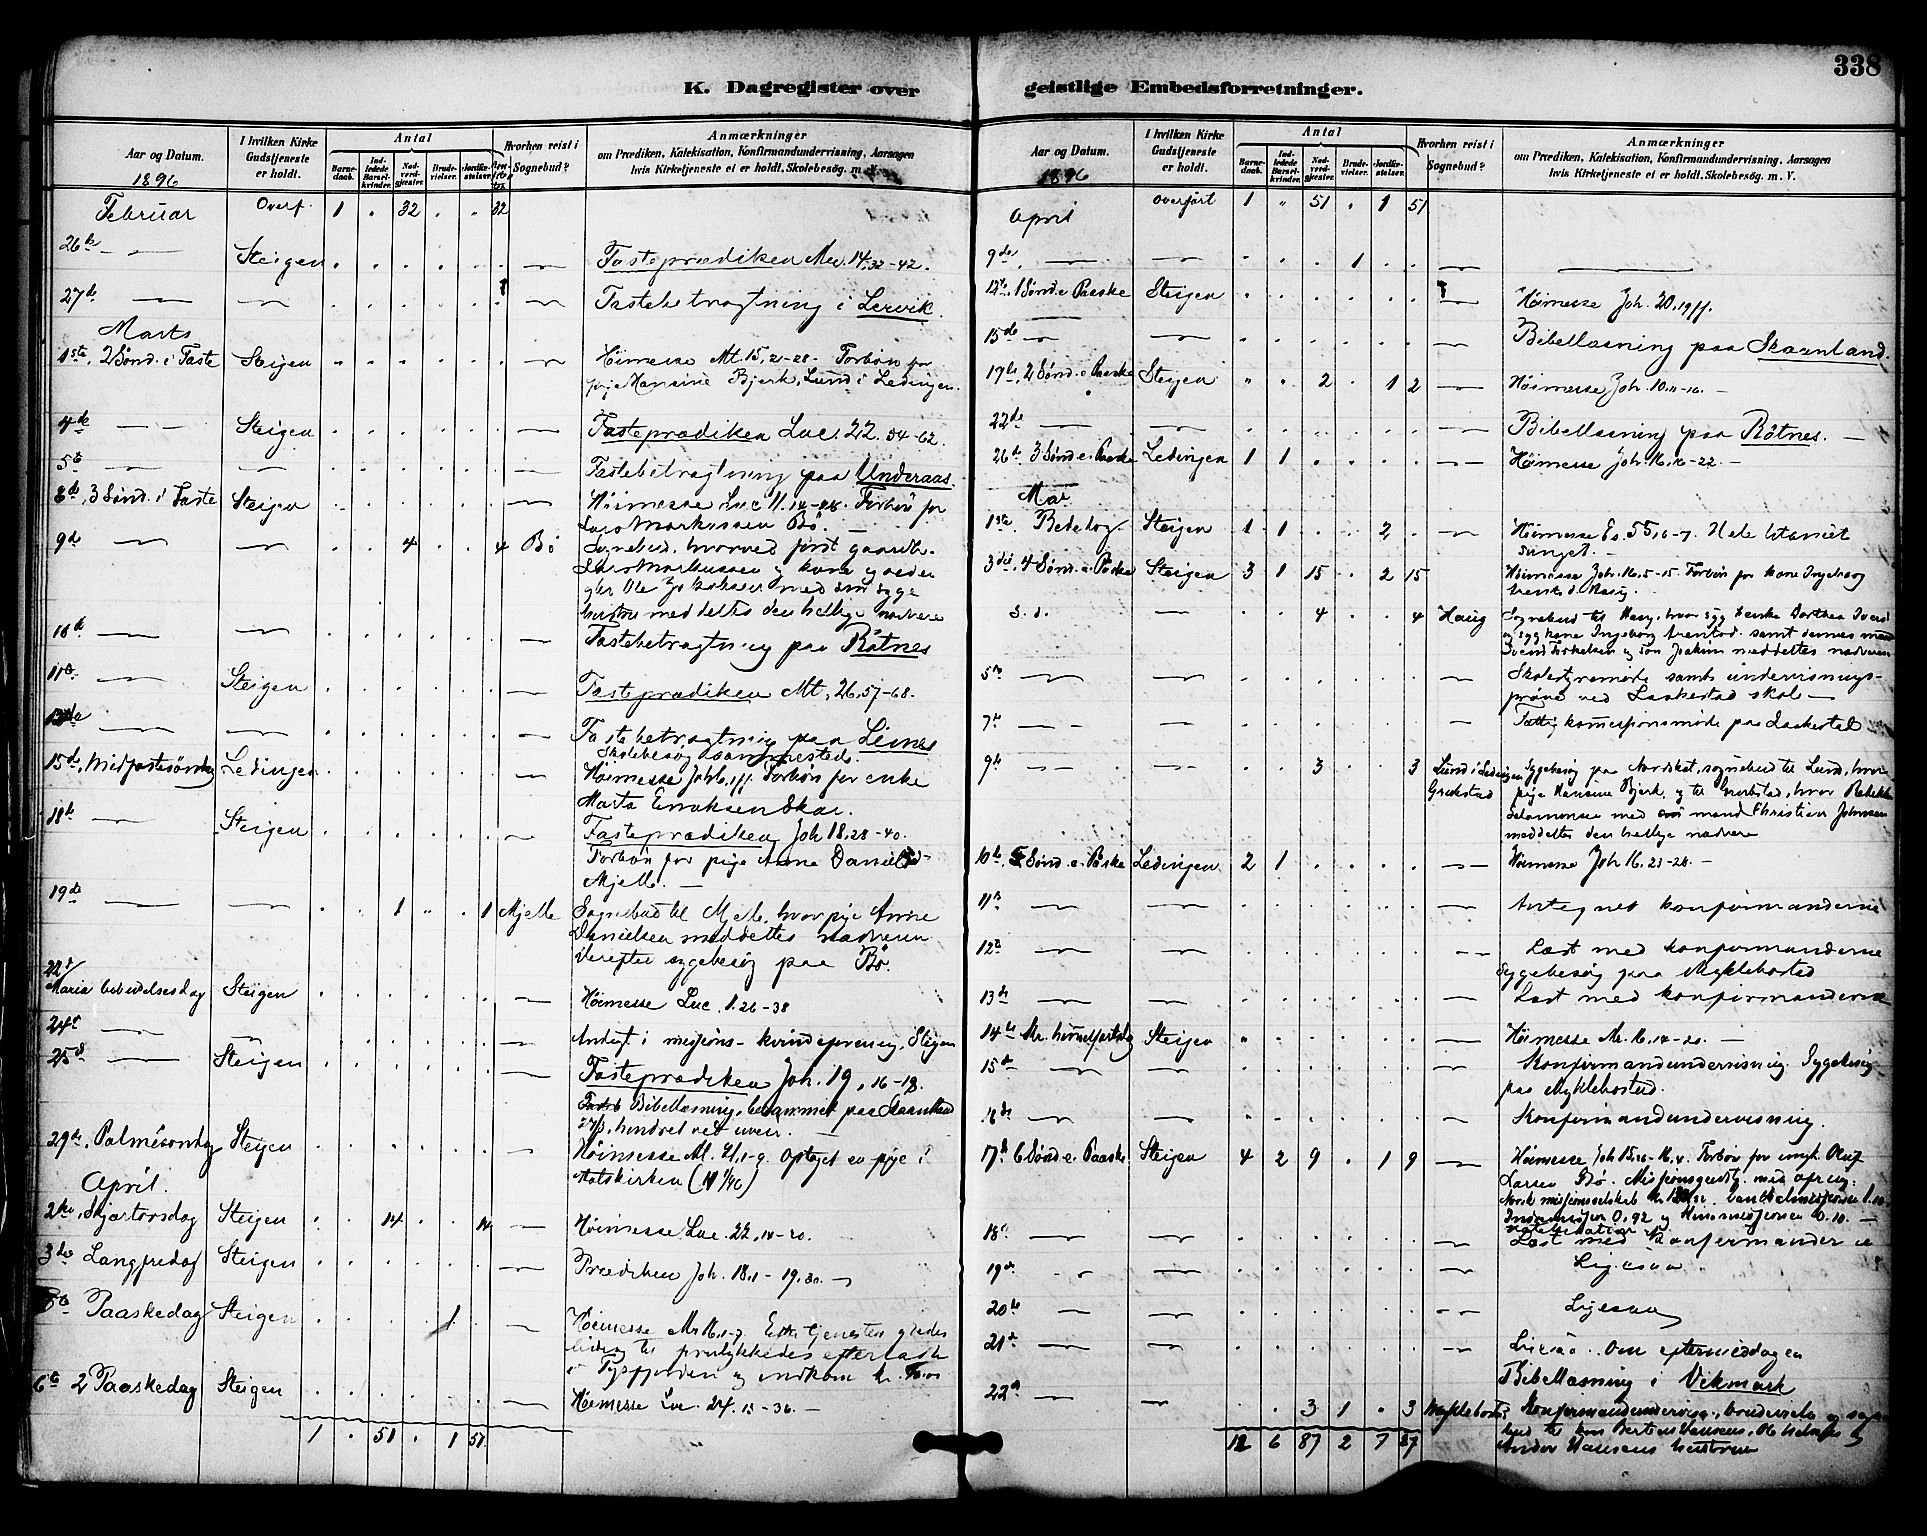 338
K. Dagregister over geistlige Embedsforretninger.
Aar og Datum.
I hvilken Kirke Gudstjeneste er holdt.
Antal
Barne-daab.
Ind-ledede Barsel-kvinder.
Nad-verd-gjester.
Brude-vielser.
Jordfæ-stelser.
Hvorhen reist i Sognebud?
Anmærkninger
om Prædiken, Katekisation, Konfirmandundervisning, Aarsagen
hvis Kirketjeneste ei er holdt, Skolebesøg, m. V.
1896
Februar Overf. 1 " 32 . " 32
26de — Steigen . . . . . . — Fasteprædiken Mc. 14,32-42.
27de — — . . . . . — Fastebetragtning i Lervik.
Marts
1ste, 2 Sønd. i Faste Steigen . . . . . . — Høimesse Mt. 15,21-28. Forbøn for
pige Hansine Bjerk, Lund i Ledingen.
4de — Steigen . . . . . . — Fasteprædiken Luc. 22. 54-62.
5te — — . . . . . . — Fastebetragtning paa Underaas.
8de, 3 Sønd. i Faste Steigen . . . . . . — Høimesse Luc 11. 14-28. Forbøn for
Lars Markussen Bø.
9de — — . . 4 . . 4 Bø Sognebud, hvorved
Lars Markussen og kone
Ole med sin syge
meddeltes den hellige nadvere
10de — — — Fastebetragtning paa Røtnes
11te — Steigen . . . . . . — Fasteprædiken Mt. 26,57-68.
— — . . . . . . — Fastebetragtning paa Leines
Skolebesøg sammesteds.
15de, Midfastesøndag Ledingen — Høimesse Joh 6.1ff. Forbøn for enke
Marta Eriksen Skar.
18de — Steigen . . . . . — Fasteprædiken Joh 18,28-40.
Forbøn for pige Anna Daniels
Mjelle. —
19de — — . . 1 " . 1 Mjelle Sognebud til Mjelle, hvor pige Anne
Danielsen meddeltes nadveren
Derefter sygebesøg paa Bø.
22de
Maria bebudelsesdag Steigen . . . . . . — Høimesse Luc. 1.26-38
24de — — — Andagt i missions-kvindeforening, Steigen
25de — Steigen . . . . . . — Fasteprædiken Joh. 19, 16-18.
Bibellæsning, paa Skaanland
hindret ved uveir. —
29de, Palmesøndag Steigen . . . . . . — Høimesse Mt. 21,1-9. Optaget en pige i
Statskirken
April.
2den, Skjærtorsdag Steigen . . 14 . . 14 — Høimesse Luc. 22, 14-20.
3die Langfredag Steigen . . . . . . — Prædiken Joh. 18.1-19.30. —
5te Paaskedag Steigen . . . . 1 — Høimesse Mr 16.1-7. Efter tjenesten
til forulykkedes efterladte
i Tysfjorden og indkom kr.
6te 2 Paaskedag Steigen . . . . . . — Høimesse Luc. 24. 13-36. —
1 . 51 . 1 51
Aar og Datum.
I hvilken Kirke Gudstjeneste er holdt.
Antal
Barne-daab.
Ind-ledede Barsel-kvinder.
Nad-verd-gjester.
Brude-vielser.
Jordfæ-stelser.
Hvorhen reist i Sognebud?
Anmærkninger
om Prædiken, Katekisation, Konfirmandundervisning, Aarsagen
hvis Kirketjeneste ei er holdt, Skolebesøg, m. V.
1896
April overført 1 " 51 . 1 51
9de — — . . . 1 . . — —
12te, 1 Sønd. e. Paaske Steigen . . . . . . — Høimesse Joh. 20,19ff.
15de — — . . . . . . — Bibellæsning paa Skaanland.
19de, 2 Sønd. e. Paaske Steigen " . 2 . 1 2 — Høimesse Joh. 10.11-16. —
22de — — . . . . . . — Bibellæsning paa Røtnes. —
26de 3 Sønd. e. Paaske Ledingen 1 1 . . . . — Høimesse Joh. 16.16-22. —
Mai
1ste Bededag Steigen 1 1 . . 2 . — Høimesse Es. 55,6-7. Hele litaniet
sunget. —
3die, 4 Sønd. e. Paaske Steigen 3 1 15 . 2 15 — Høimesse Joh. 16.5-15. Forbøn for kone Ingeborg
s. d. — . . 4 . . 4 Haug Sognebud til Haug, hvor syg enke Dorthea
og syg kone Ingeborg samt dennes mand
og søn Joakim meddeltes nadveren
5te — — . . . . . . — Skolestyremøde samt undervisnings-
prøve ved Laskestad skole —
7de — — . . . . . . — Fattigkommissionsmøde paa Laskestad
9de — — . . 3 . . 3 Lund i Ledingen Sygebesøg paa Nordskot, sognebud til Lund, hvor
Grøkstad pige Hansine Bjerk, og til hvor
Salomonsen med mand Christian Johnsen
meddeltes den hellige nadvere
10de 5 Sønd. e. Paaske Ledingen 2 1 . . . . — Høimesse Joh 16. 23-28. —
11te — — . . . . . . — Antegnet konfirmanderne
12te — — . . . . . . — Læst med konfirmanderne
Sygebesøg paa Myklebostad
13de — — . . . . . . — Læst med konfirmanderne
14de Kr. himmelfartsdag Steigen " . . . . . — Høimesse Mr. 16. 14-20. —
15de — — . . . . . . — Konfirmandundervisning. Sygebesøg
paa Myklebostad.
16de — — . . . . . . — Konfirmandundervisning.
17de 6 Sønd. e. Paaske Steigen 4 2 9 . 1 9 — Høimesse Joh 15,26-16,4. Forbøn for ungk. Oluf
Larsen Bø. Missionsgudstj. med ofring:
Norsk missionsselskab
0,92 og 0.10. —
18de — — . . . . . . — Læst med Konfirmanderne
19de — — . . . . . . — Ligesaa
20de — — . . . . . . — Ligesaa
21de — — . . . . . . — Ligesaa. Om eftermiddagen
Bibellæsning i Vikmark
22de — — . . 3 1 . 3 Myklebostad Konfirmandundervisn., brudevielse og sogne-
bud til
Hansens hustru
12 6 87 2 7 87